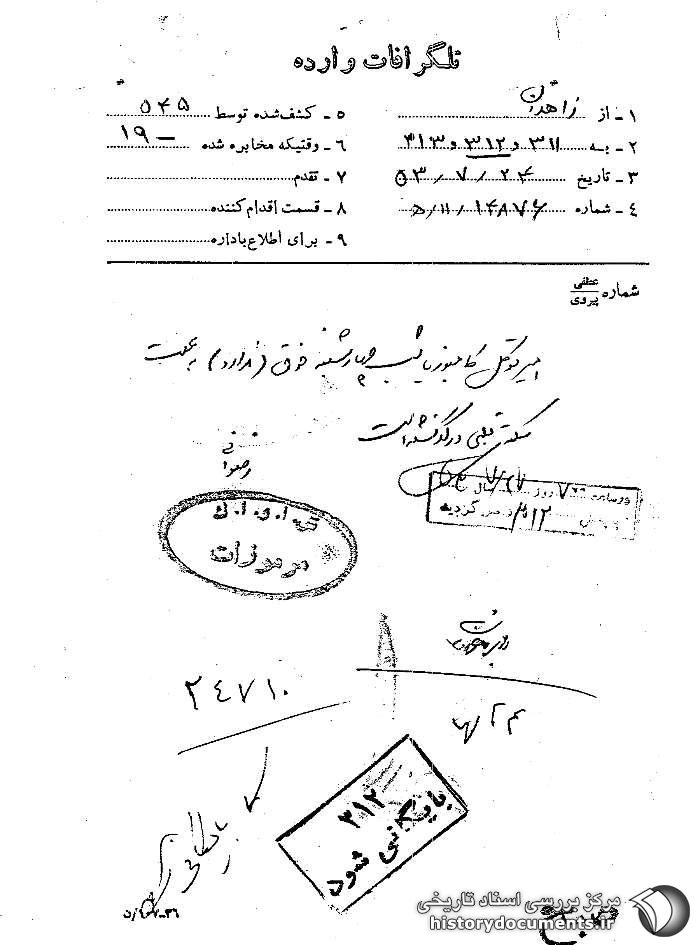 تلگرافات وارده
۱ـ از زاهدان
۲ـ به ۳۱۱ و ۳۱۲ و ۳۱۳
۳ـ تاریخ ۵۳/۷/۲۴
۴ـ شماره ۱۴۸۷۶/۱۱/۵
۵ـ کشف‌شده توسط ۵۴۵
۶ـ وقتیکه مخابره شده ۱۹۰۰
۷ـ تقدم
۸ـ قسمت اقدام کننده
۹ـ برای اطلاع باداره
شماره عطفی
پیروی
امیر توکل کامبوزیا شب چهارشنبه فوق (ندارد) به علت
سکته قلبی درگذشته است
رضوانی
س.ا.و.ا.ک
مرموزات
روز سال
۳۱۲ گردید
۲۴۷۱۰
۳۱۲
بایگانی شود
مرکز بررسی اسناد تاریخی
historydocuments.ir